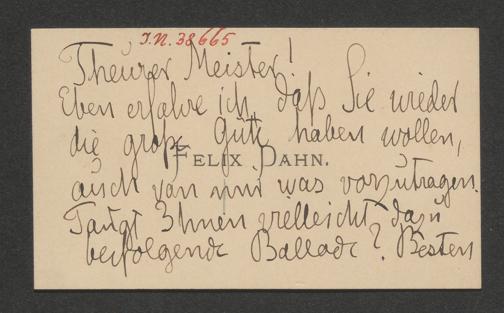 I.N. 38665
Theurer Meister!
Eben erfahre ich, daß Sie wieder
die große Güte haben wollen,
FELIX DAHN.
auch von mir was vorzutragen.
Taugt Ihnen vielleicht dazu
beifolgende Ballade? Besten